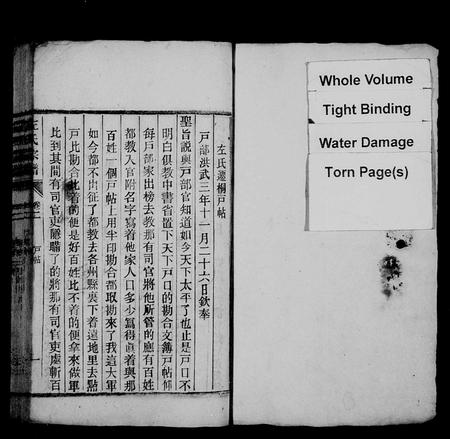 左氏遷桐戸帖
戸部洪武三年十一月二十六日欽奉
聖旨說與戸部官知道如今天下太平了也止是戸口不
明白俱教中書省置下天下戸口的勘合文簿戸帖你
每戸部家出榜去教那有司官將他所管的應有百姓
都教入官附名字寫着他家人口多少寫得真着與那
百姓一個戸帖上用半印勘合都取勘來了我這大軍
如今都不出征了都教去各州縣裏下着遶地里去點
戸比勘合比着的便是好百姓比不着的便拿來做軍
比到其間有司官吏隱瞞了的將那有司官吏處斬百
左氏宗譜
卷一
戸帖
Whole Volume
Tight Binding
Water Damage
Torn Page(s)